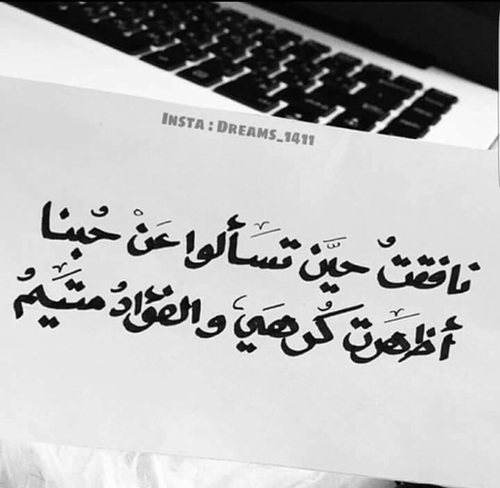 INSTA : DREAMS_1411
نافقتُ حيَّن تسَألوا عَنْ حُبنا
أظهَرت كُرهَي والفؤادُ متيَمُ